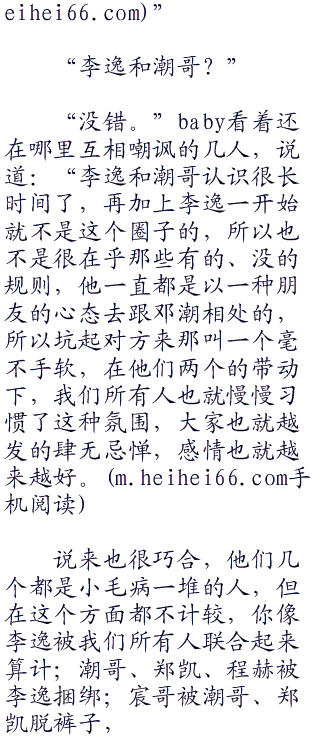 eihei66.com)”
“李逸和潮哥？”
“没错。”baby看着还
在哪里互相嘲讽的几人，说
道：“李逸和潮哥认识很长
时间了，再加上李逸一开始
就不是这个圈子的，所以也
不是很在乎那些有的、没的
规则，他一直都是以一种朋
友的心态去跟邓潮相处的，
所以坑起对方来那叫一个毫
不手软，在他们两个的带动
下，我们所有人也就慢慢习
惯了这种氛围，大家也就越
发的肆无忌惮，感情也就越
来越好。(m.heihei66.com手
机阅读)
说来也很巧合，他们几
个都是小毛病一堆的人，但
在这个方面都不计较，你像
李逸被我们所有人联合起来
算计；潮哥、郑凯、程赫被
李逸捆绑；宸哥被潮哥、郑
凯脱裤子，